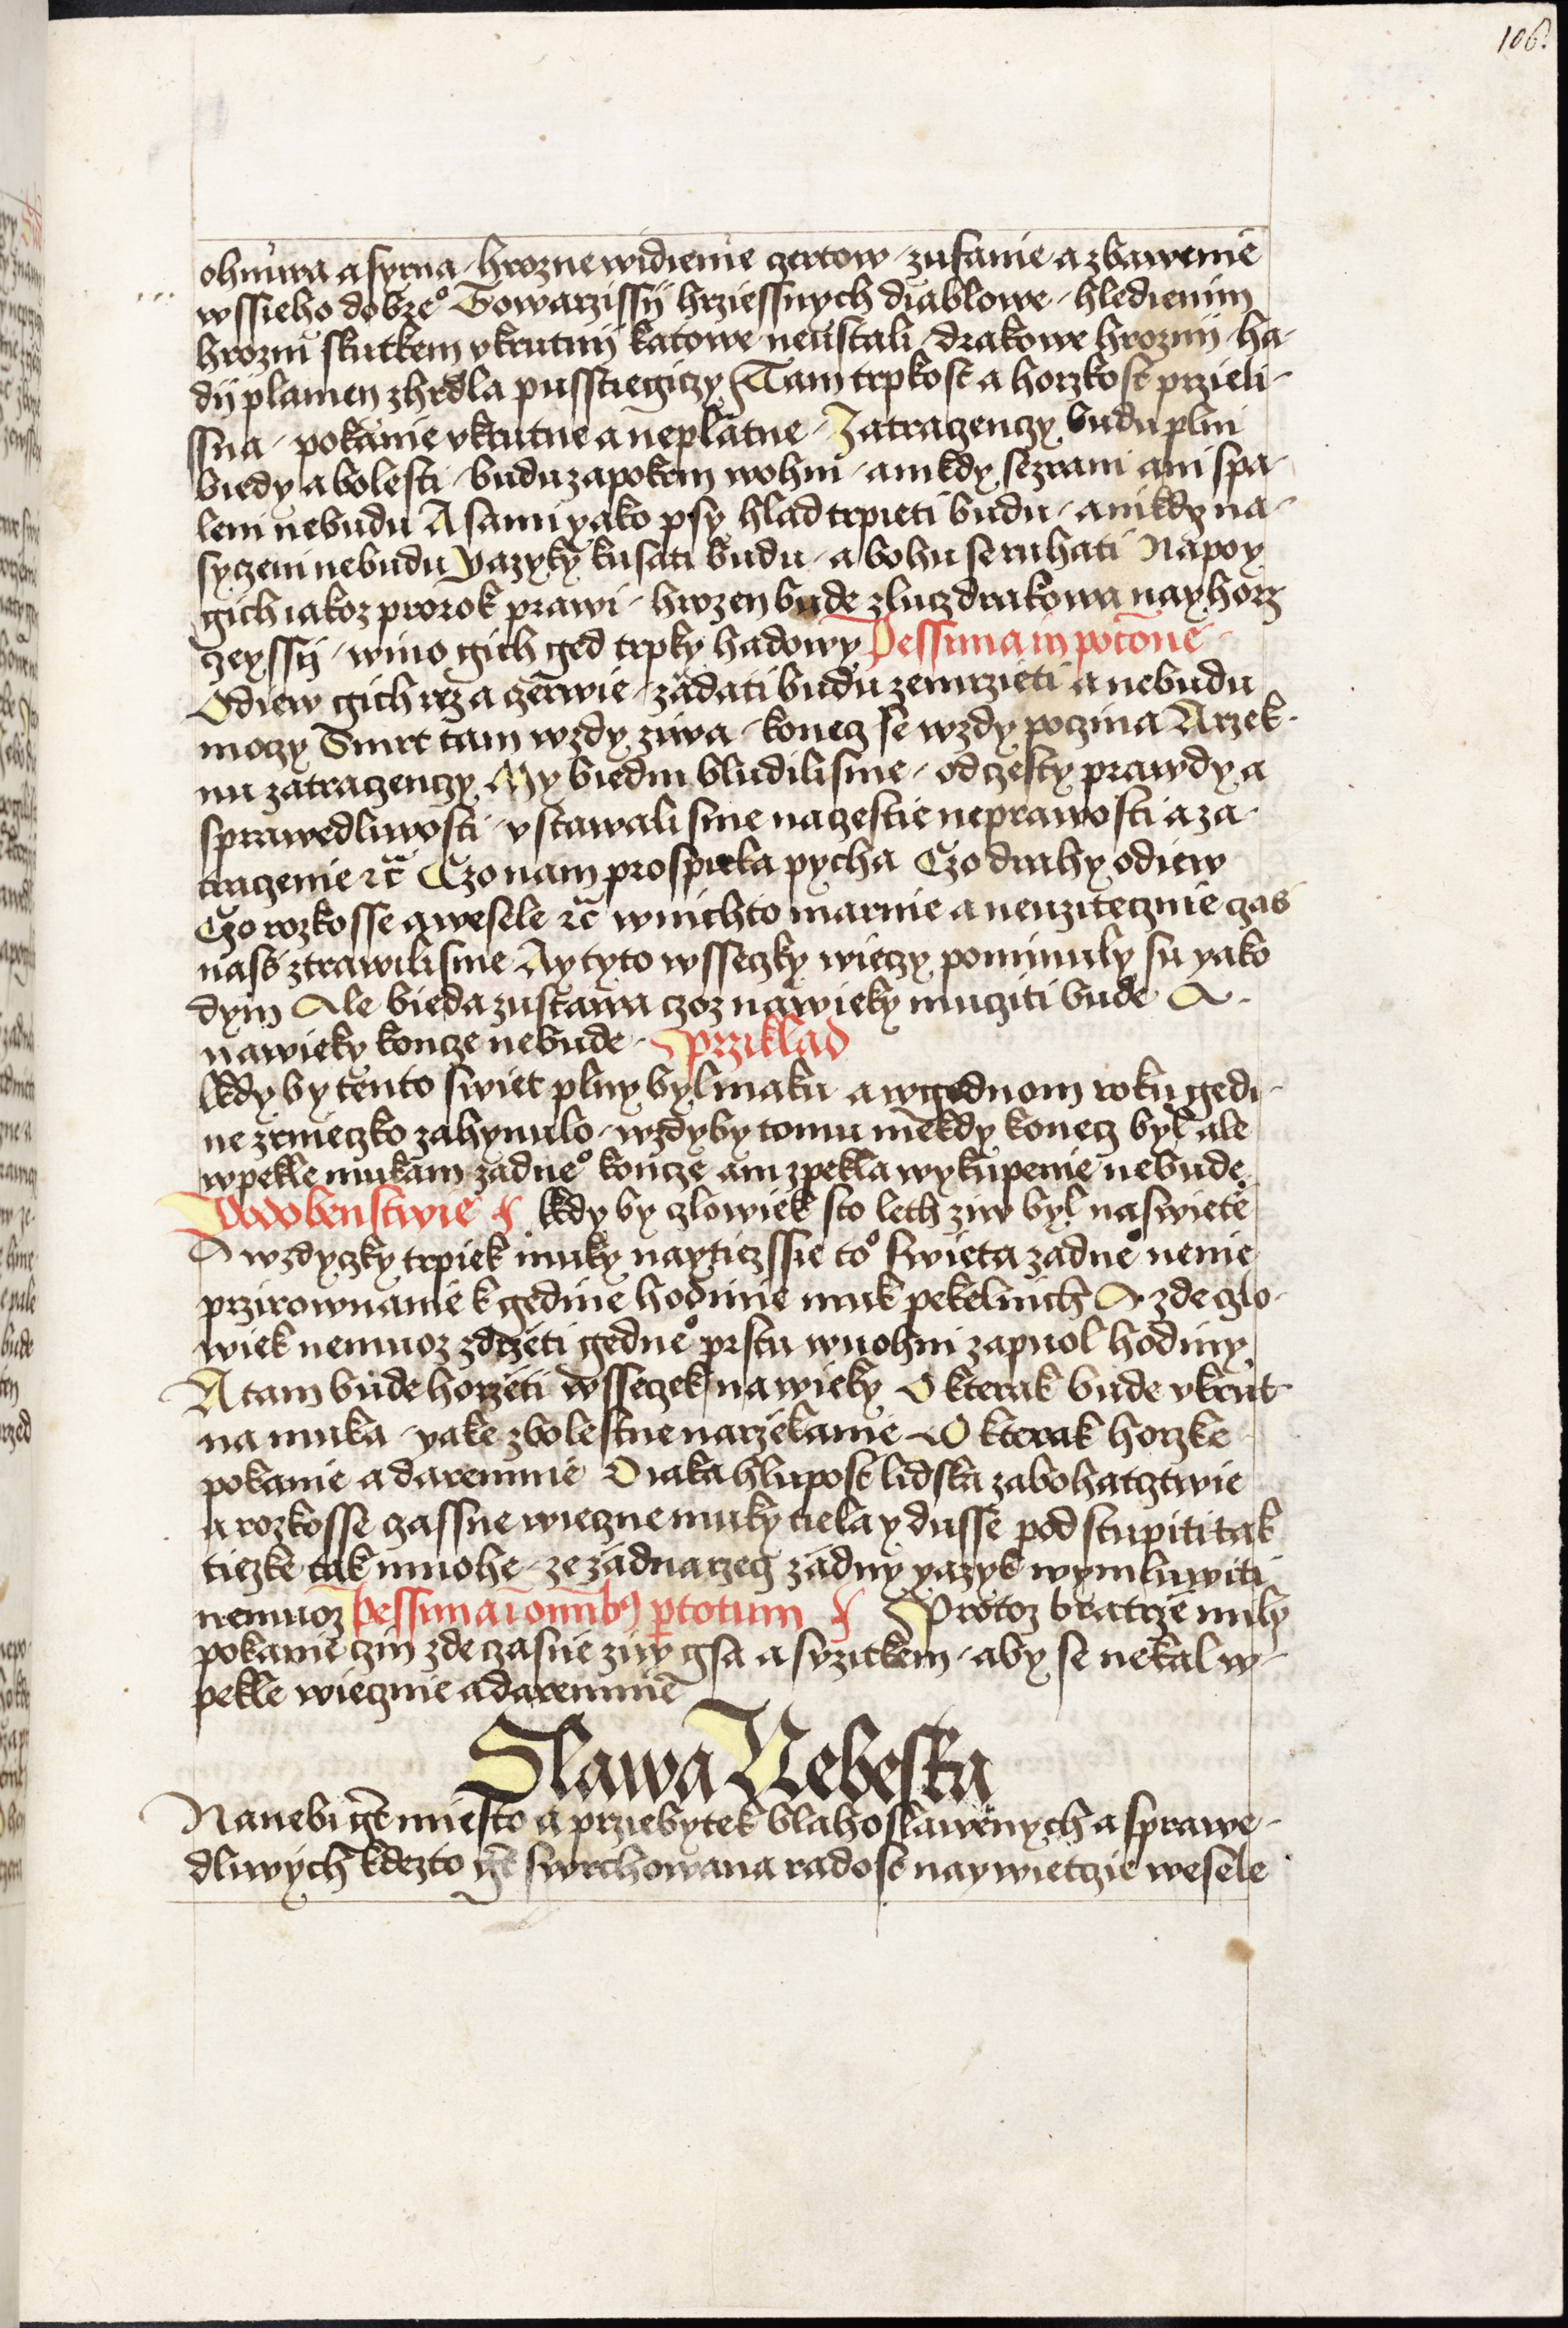 106.
ohniwa a syrna / hrozne widienie czertow / zufanie a zbawenie
wssieho dobreº Towarzissij hrziessnych diablowe / hledienim
hrozni skutkem vkrutnij katowe neustali / drakowe hroznij / ha-
dij plamen z hrdla pusstiegiczy Tam trpkost a horzkost przieli-
ssna / pokanie vkrutne a neplatne / Zatraczenczy budu plni
biedy a bolesti / budu za pokrm wohni / a nikdy sezrani ani spa-
leni nebudu A sami yako psy hlad trpieti budu / a nikdy na-
syczeni nebudu Yazyky kusati budu / a bohu se ruhati Napoy
gich iakoz prorok prawi / hrozen bude zlucz drakowa nayhorz
czeyssij / wino gich ged trpky hadowy Pessima in potōne
Odiew gich rez a czerwie / zadati budu zemrzieti a nebudu
moczy Smrt tam wzdy ziwa / konecz se wzdy poczina A rzek-
nu zatraczenczy My biedni bludili sme / od czesty prawdy a
sprawedliwosti / vstawali sme na czestie neprawosti a za-
traczenie rč Czo nam prospiela pycha Czo drahy odiew
Czo rozkosse a wesele rč w nichto marnie a neuzitecznie czas
nass ztrawili sme Ay tyto wsseczky wieczy pominuly su yako
dym Ale bieda zustawa czoz na wieky mucziti bude A
na wieky koncze nebude / Przíklad
Kdy by tento swiet plny byl maku a w gednom roku gedi-
ne zrnieczko zahynulo / wzdy by tomu niekdy konecz byl ale
w pekle mukam zadneº koncze ani z pekla wykupenie nebude
Podobenstwie kdy by czlowiek sto leth ziw byl na swiete
A wzdyczky trpiek muky naytiezssie toº swieta zadneº nenie
przirownanie k gedine hodinie muk pekelnich A zde czlo-
wiek nemuoz zdrzeti gedneº prstu w uohni za puol hodiny
A tam bude horzeti wsseczek na wieky O kterak bude vkrut-
na muka / yake zbolestne narzekanie O kterak horzke
pokanie a daremnie O iaka hlupost lidska za bohatcztwie
a rozkosse czassne wieczne muky tiela y dusse podstupiti tak
tiezke tak mnohe / ze zadna rzecz zadny yazyk wymluwiti
nemuoz Pessima ī omībꝯ ꝑ totum Protoz bratrze mily
pokanie czin zde czasne ziw gsa a s vzitkem / aby se nekal w-
pekle wiecznie a daremnie
Slawa Nebeska
Na nebi gēt miesto a przebytek blahoslawenych a sprawe-
dliwych kdezto gēt swrchowana radost naywietczie wesele